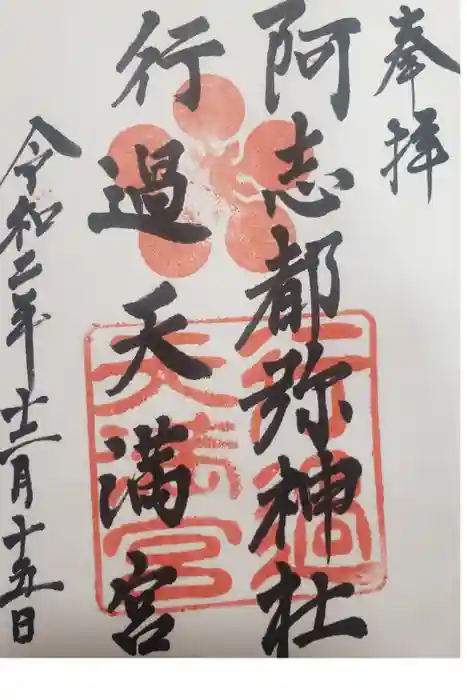 奉拝
阿志都弥神社
行過天満宮
令和二年十二月十五日
行過
天満宮